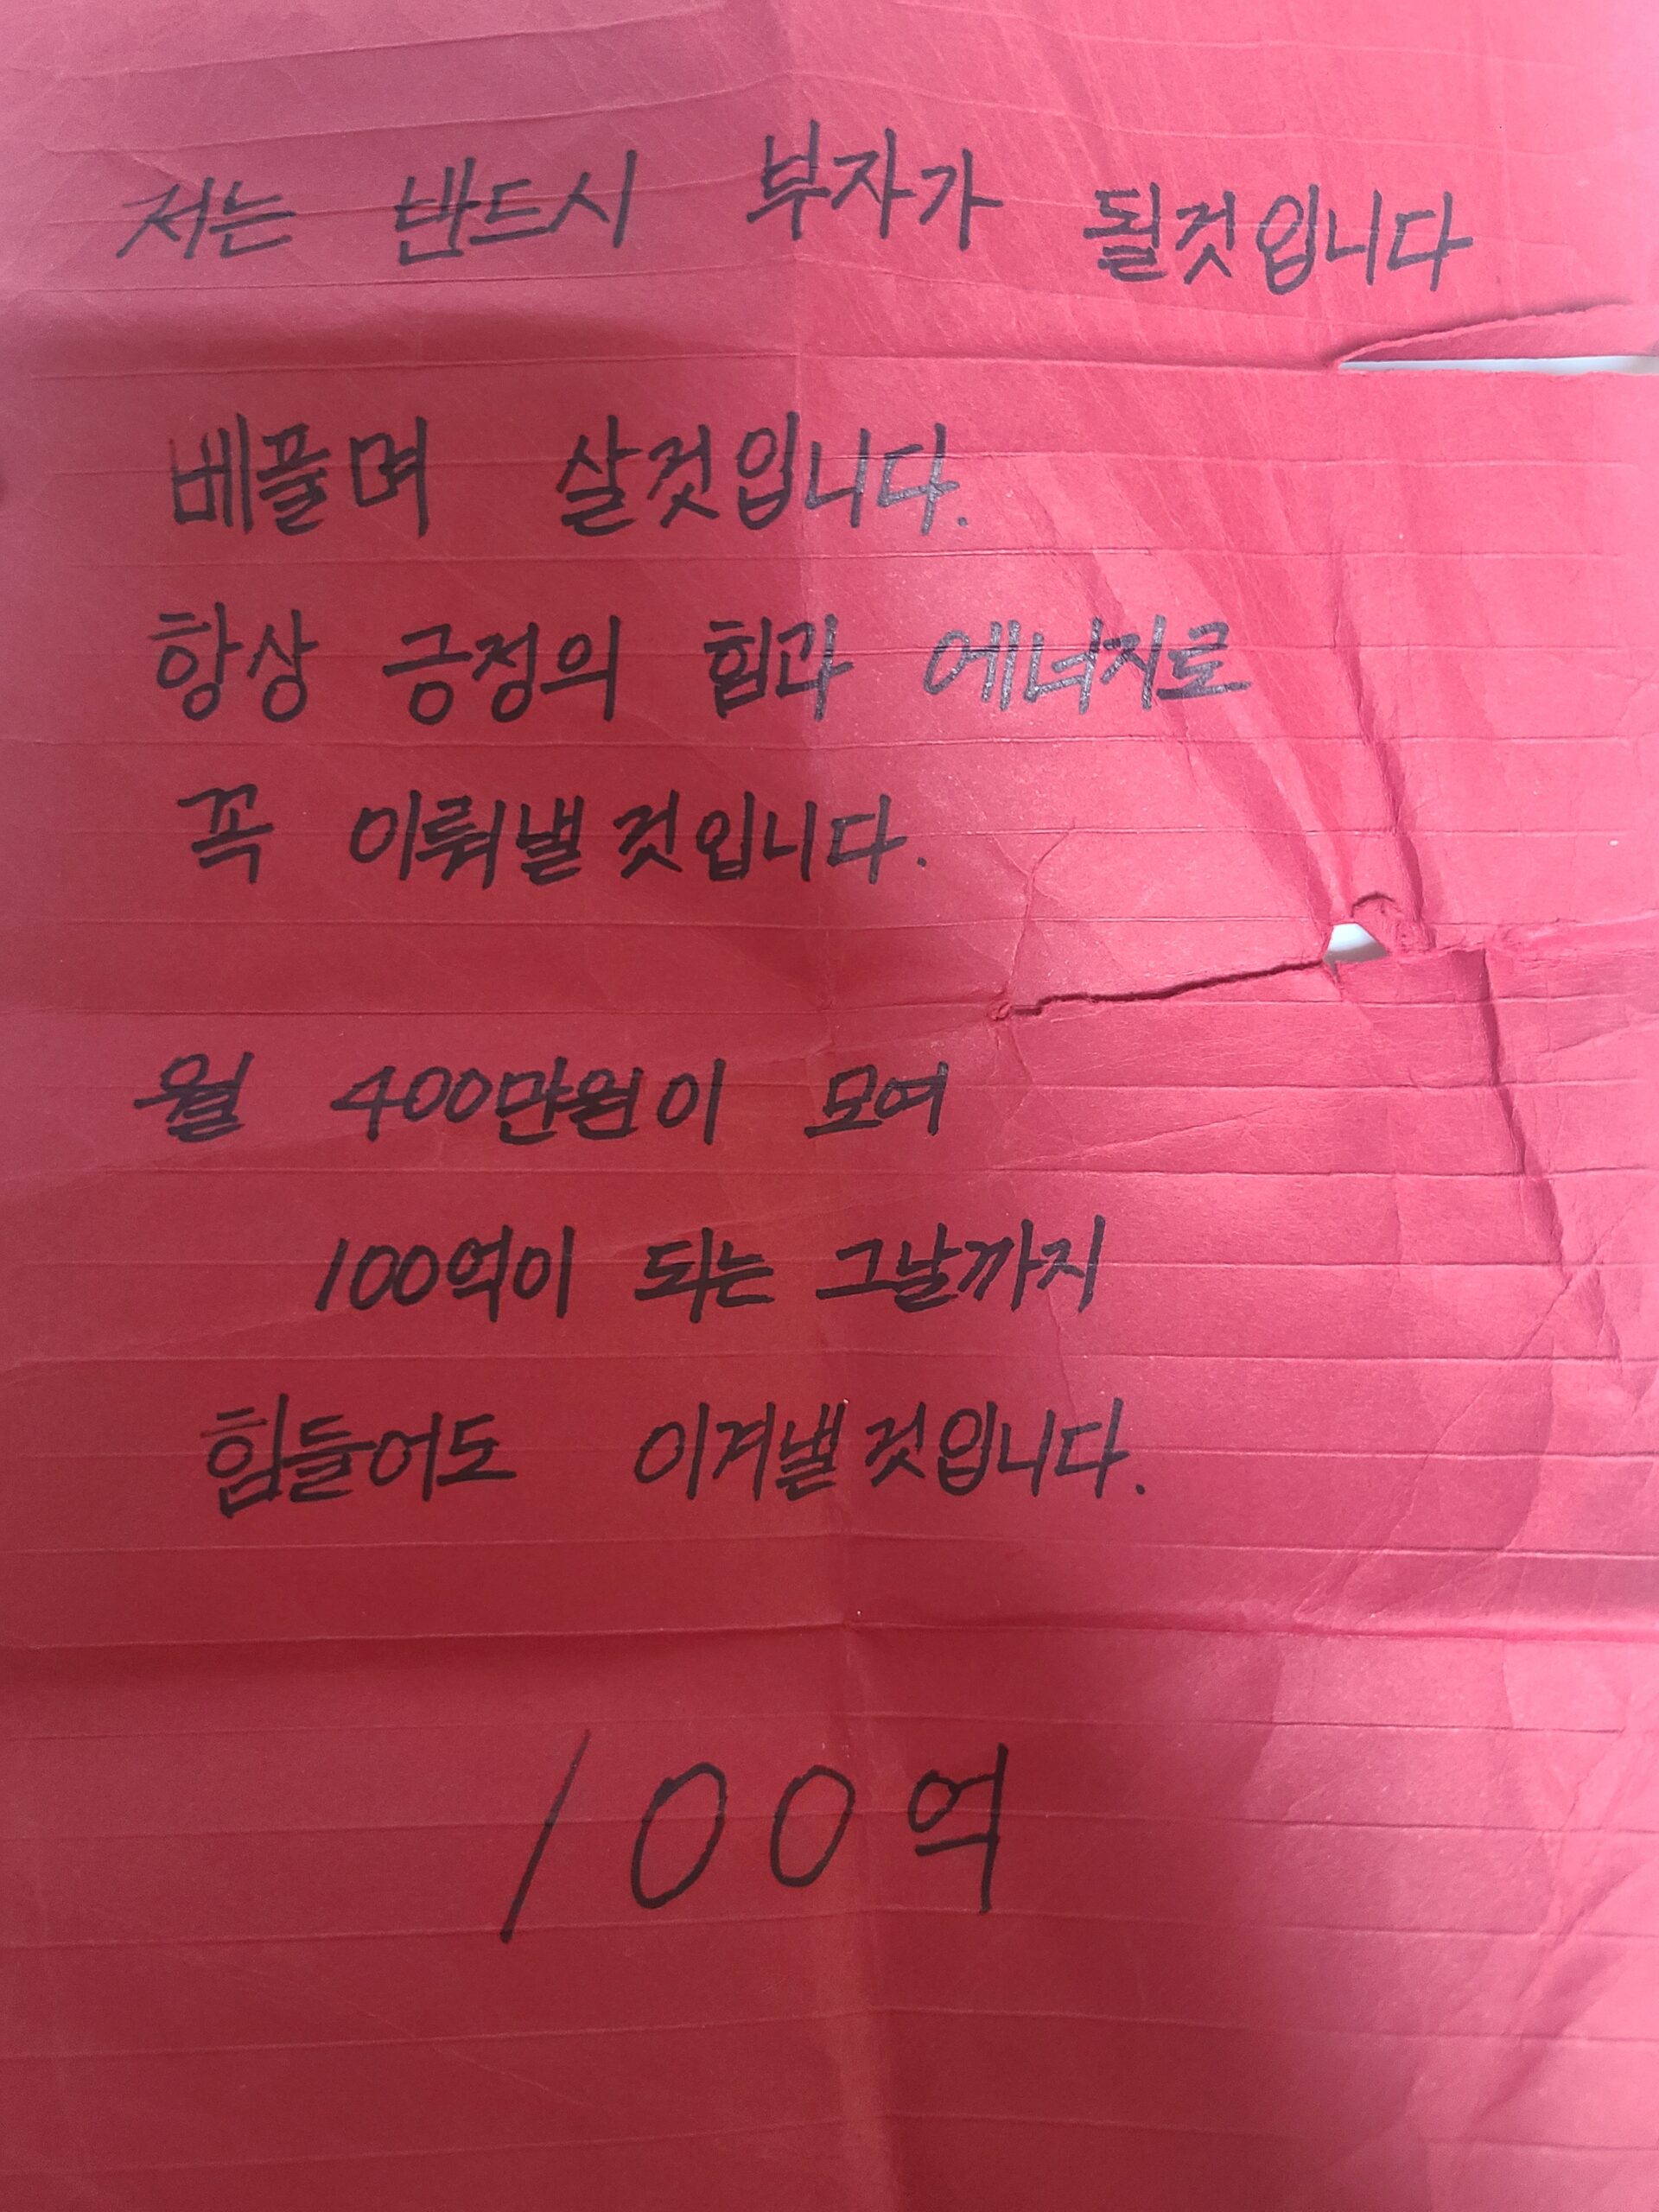 저는 반드시 부자가 될것입니다
베풀며 살것입니다.
항상 긍정의 힘과 에너지로
꼭 이뤄낼 것입니다.
월 400만원이 모여
100억이 되는 그날까지
힘들어도 이겨낼 것입니다.
100억